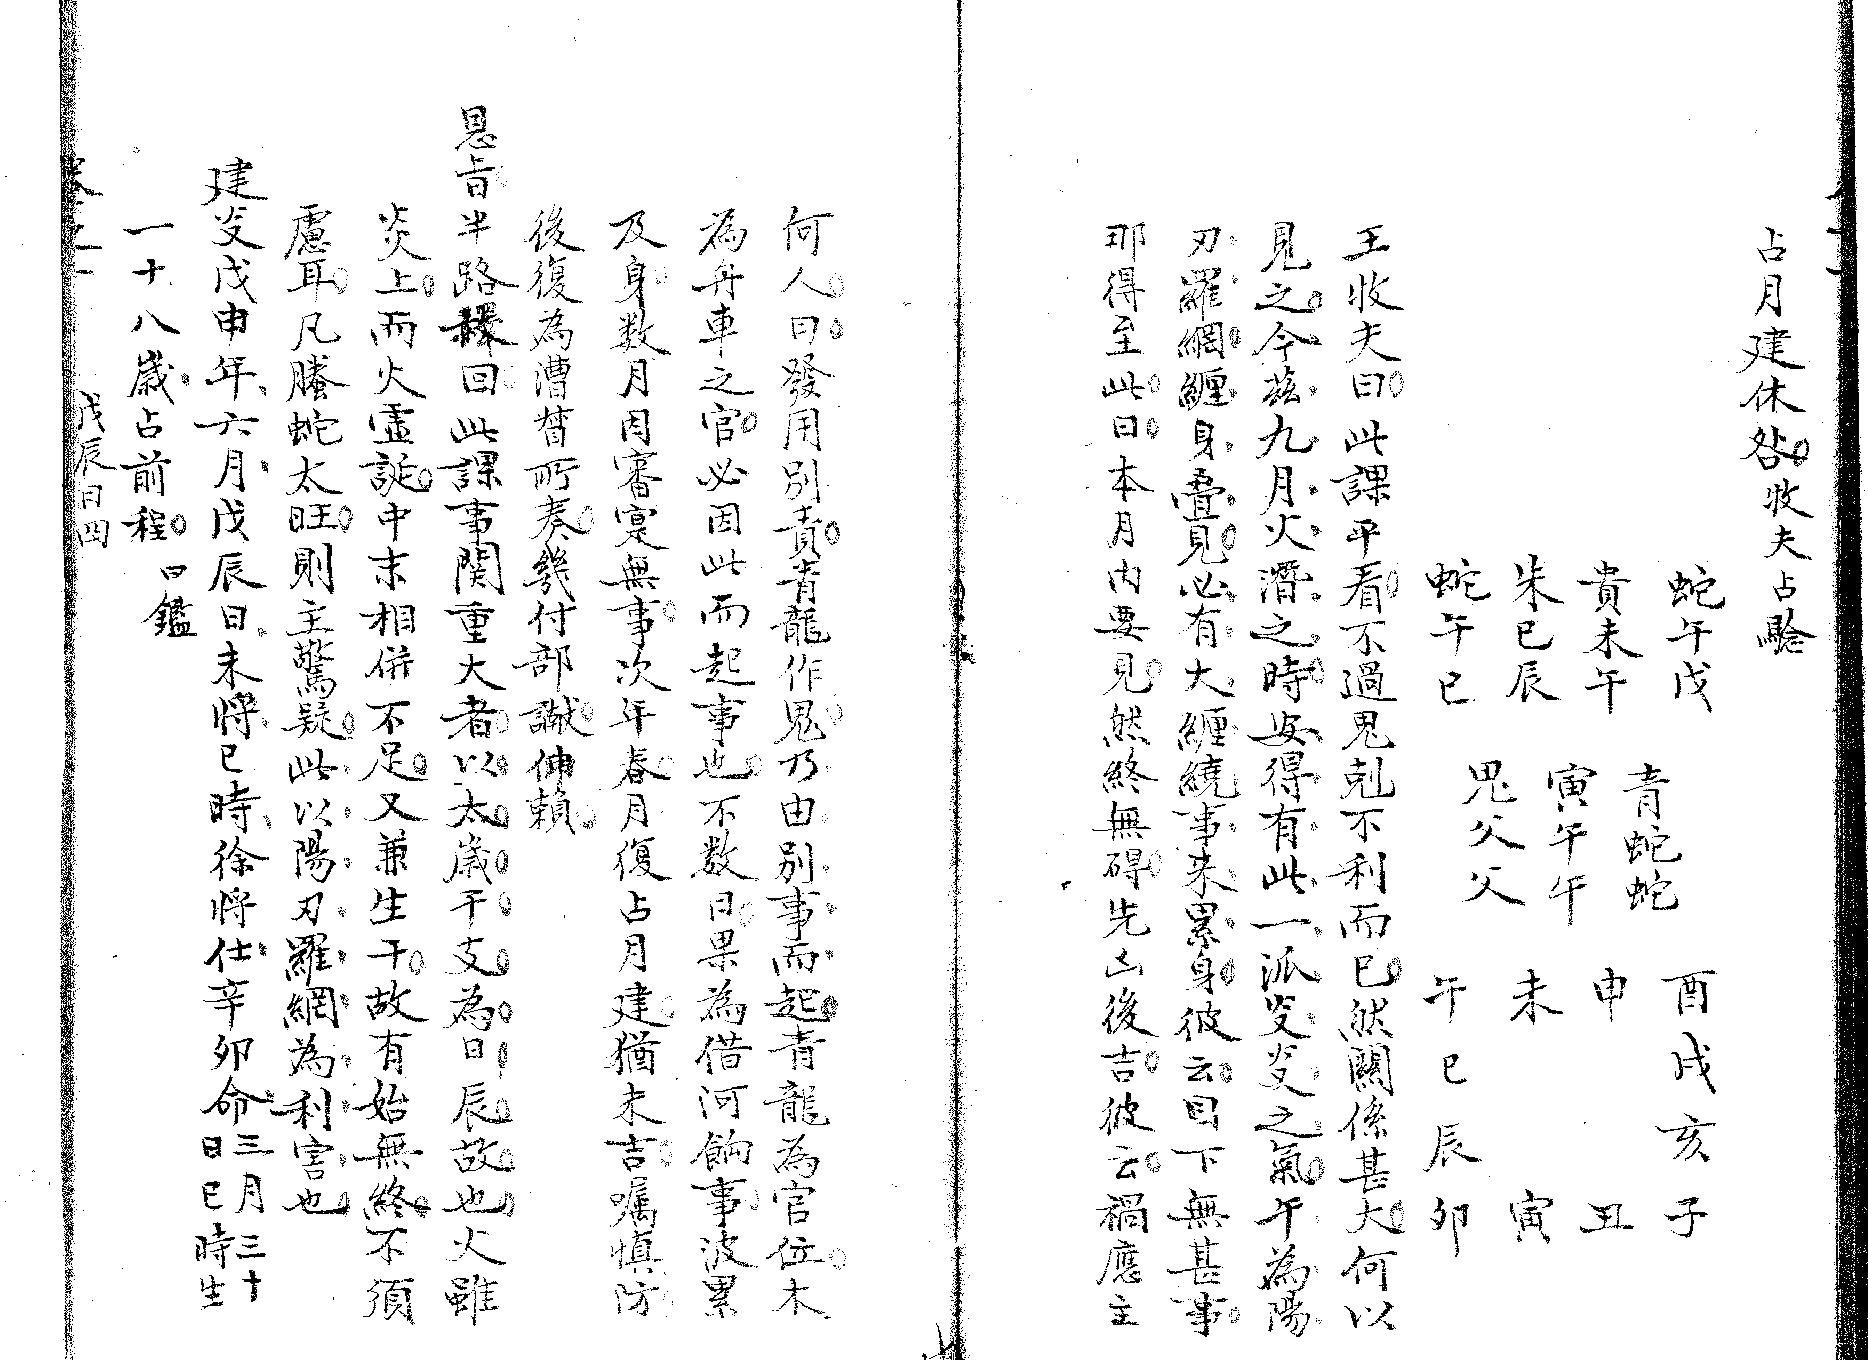 占月建休咎牧夫占驗
蛇午戊　青蛇蛇　酉戌亥子
貴未午　寅午午　申　　丑
朱巳辰　鬼父父　未　　寅
蛇午巳　　　　　午巳辰卯
王牧夫曰此課平看不過鬼剋不利而已然關係甚大何以
見之今茲九月火潛之時安得有此一派炎炎之氣午為陽
刃羅網纏身疊見必有大纏繞事來累身彼云目下無甚事
那得至此曰本月內要見然終無碍先凶後吉彼云禍應主
何人曰發用別責青龍作鬼乃由別事而起青龍為官位木
為舟車之官必因此而起事也不数日果為借河餉事波累
及身数月因審寔無事次年春月復占月建猶未吉囑慎防
後復為漕督所奏幾付部讞伸賴
恩旨半路釋回此課事関重大者以太歲干支為日辰故也火雖
炎上而火虛誕中末相併不足又兼生干故有始無終不須
慮耳凡螣蛇太旺則主驚疑此以陽刃羅網為利害也
建炎戊申年六月戊辰日未將巳時徐將仕辛卯命三月三十
日巳時生
一十八歲占前程曰鑑
戊辰日四